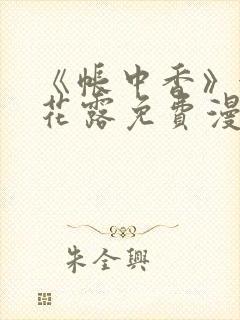 《帐中香》
花露免費漫
朱全興